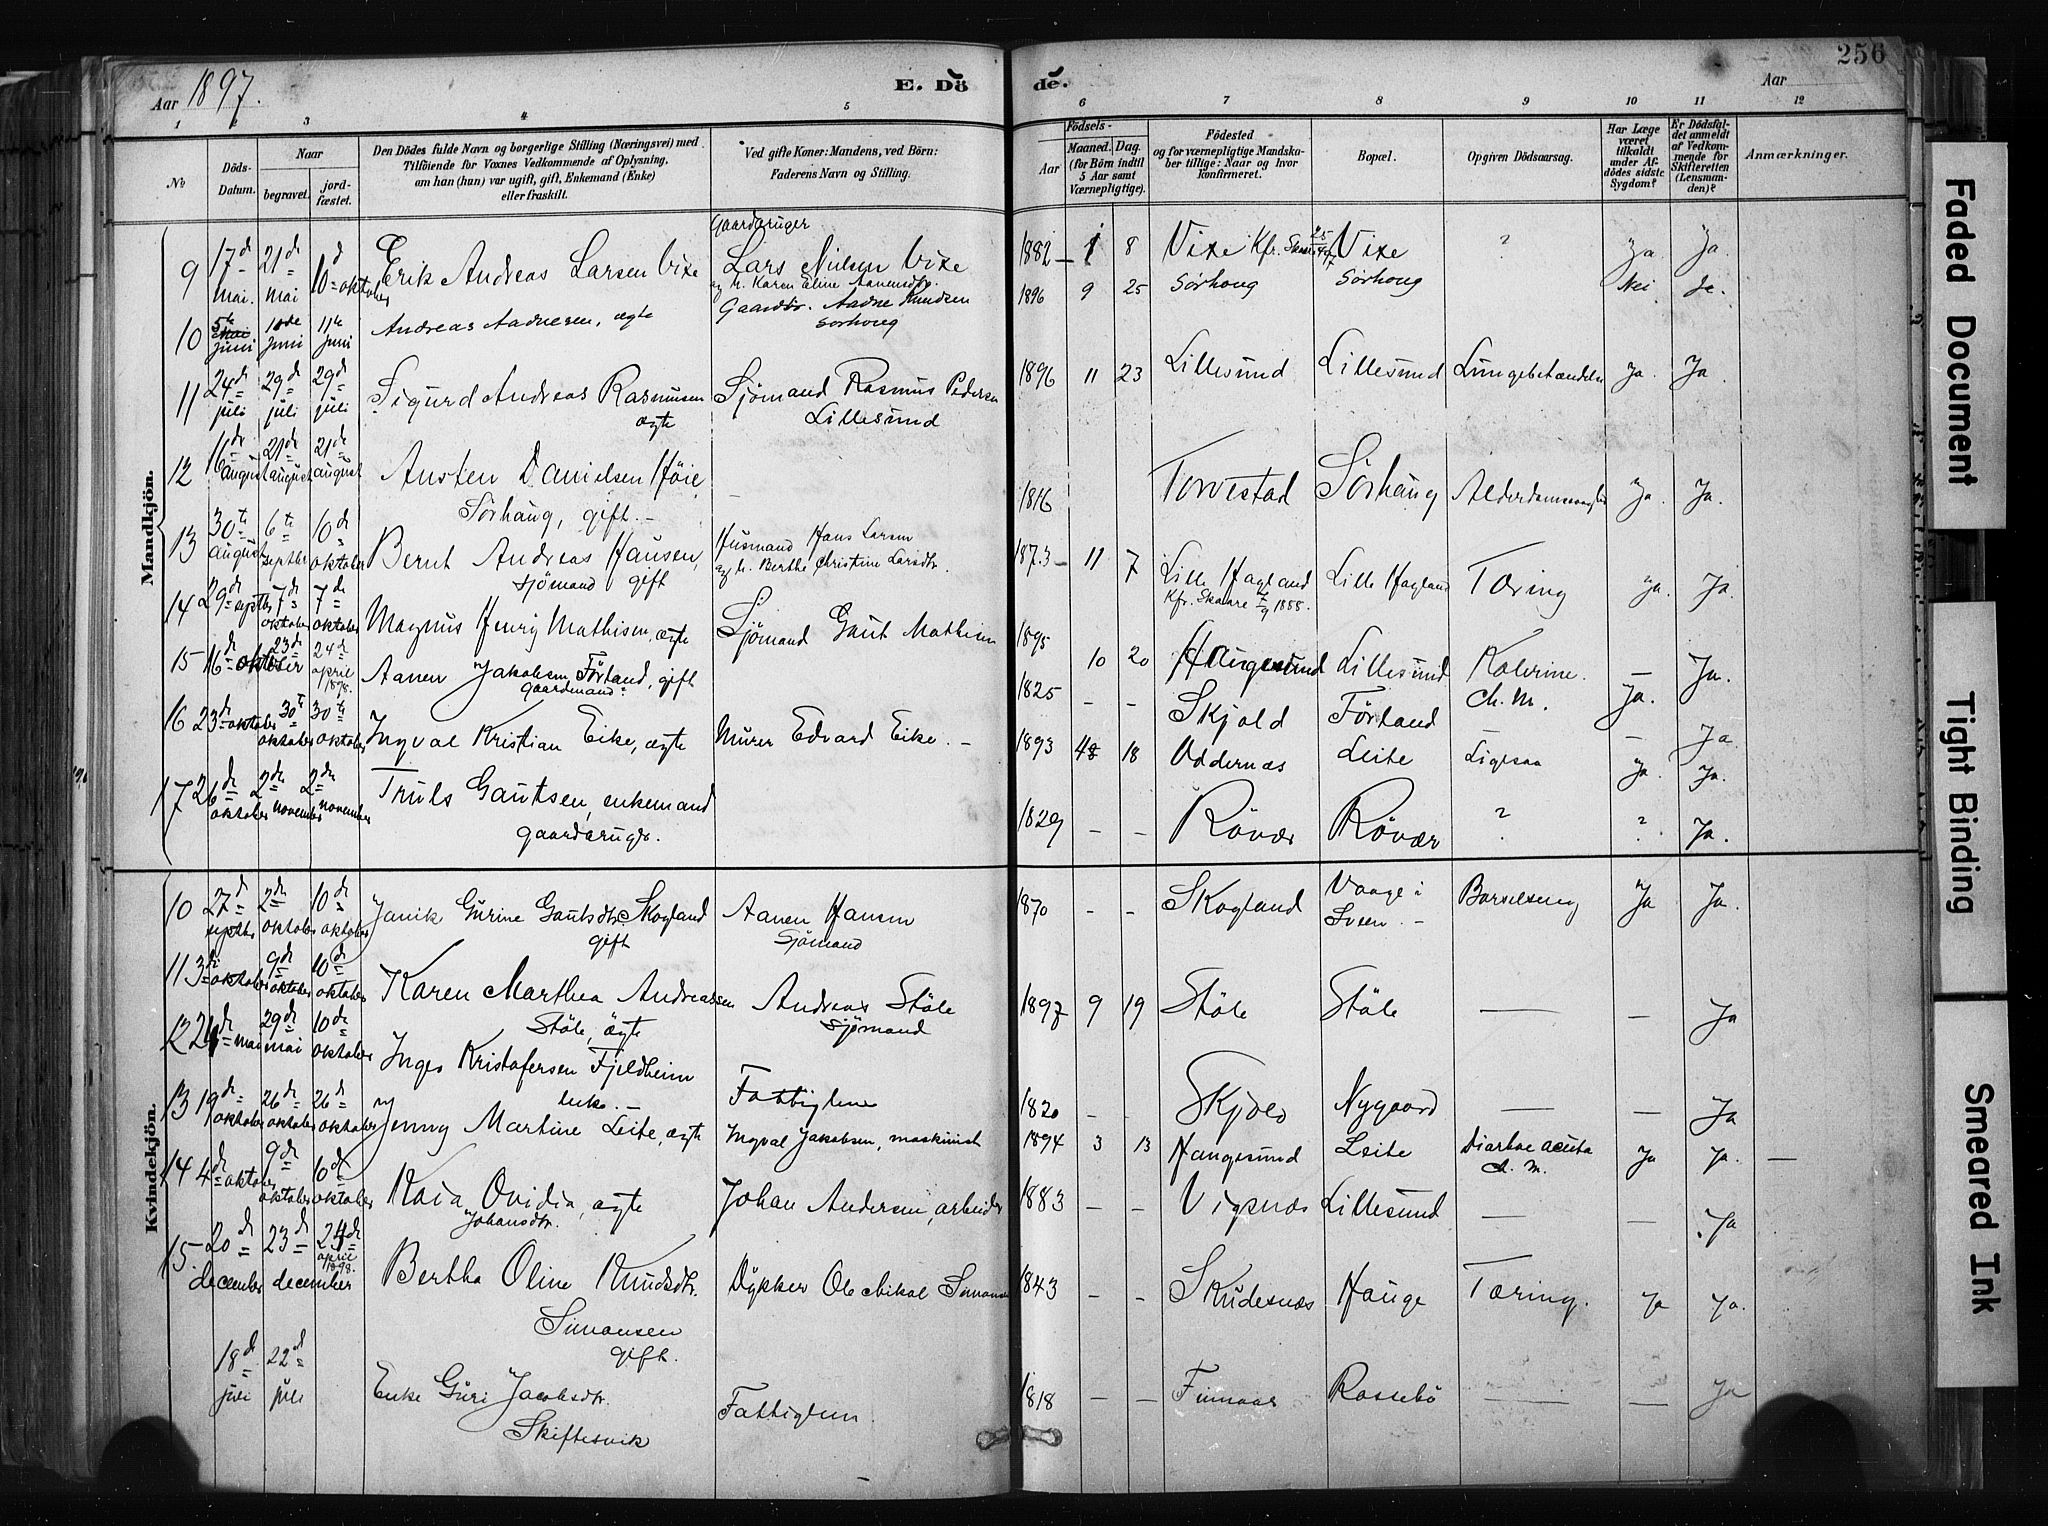 256
Aar 1897.
E. Döde.
Aar
1 2 3 4 5 6 7 8 9 10 11 12
No
Döds-Datum.
Naar
begravet.
jord-fæstet.
Den Dödes fulde Navn og borgerlige Stilling (Næringsvei) med
Tilföiende for Voxnes Vedkommende af Oplysning,
om han (hun) var ugift, gift, Enkemand (Enke)
eller fraskilt.
Ved gifte Koner: Mandens, ved Börn:
Faderens Navn og Stilling.
Födsels-
Aar
Maaned. Dag.
(for Börn indtil
5 Aar samt
Værnepligtige).
Födested
og for værnepligtige Mandska-
ber tillige: Naar og hvor
konfirmeret.
Bopæl.
Opgiven Dödsaarsag.
Har Læge
været
tilkaldt
under Af-
dödes sidste
Sygdom?
Er Dödsfal-
det anmeldt
af Vedkom-
mende for
Skifteretten
(Lensman-
den)?
Anmærkninger.
Mandkjön.
9 17d mai. 21d mai 10d oktober Erik Andreas Larsen Vixe Gaardbruger Lars Nielsen Vixe og h. Karen Eline 1882 1 8 Vixe Kfr. Vixe ? Ja. Ja.
10 5te juni 10de juni 11te juni Andreas Aadnesen, ægte Gaardbr. Aadne Knudsen Sörhoug 1896 9 25 Sörhoug Sörhoug Nei
11 24d juli 29d juli 29d juli Sigurd Andreas Rasmusen ægte Sjömand Rasmus Pedersen Lillesund 1896 11 23 Lillesund Lillesund Lungebetændelse Ja. Ja.
12 16d august 21d august 21d august Austen Danielsen Höie, Sörhaug, gift. — 1816 Torvestad Sörhaug Ja. Ja.
13 30te august 6te septbr 10d oktober Bernt Andreas Hansen, sjömand gift Husmand Hans Larsen og h. Berthe Christine Larsdtr. 1873 11 7 Lille Hagland Kfr. Skaare 1888. Lille Hagland Tæring Ja. Ja.
14 29d septbr 7d oktober 7d oktober Magnus Henry Mathisen, ægte Sjömand Gaut Mathisen 1895 10 20 Haugesund Lillesund Kolerine. — Ja.
15 16d oktober 23d 24d april 1898. Aanen Jakobsen Förland, gift gaardmand. 1825 — — Skjold Förland Ch. M. Ja. Ja.
16 23d oktober 30te oktober 30te oktober Ingval Kristian Eike, ægte Murer Edvard Eike. — 1893 4 18 Oddernæs Leite — Ja.
17 26d oktober 2den november 2den november Truls Gautsen, enkemand gaardbruger. 1829 — — Rövær Rövær ? ? Ja.
Kvindekjön.
10 27d septbr 2den oktober 10d oktober Janik Gurine Gautsdtr. Skogland gift Aanen Hansen Sjömand 1870 — — Skogland Vaage i Sveen. — Barselseng Ja Ja.
11 3die oktober 9d oktober 10d oktober Karen Marthea Andreassen Stöle, ægte Andreas Stöle Sjömand 1897 9 19 Stöle Stöle — — Ja
12 24d mai 29d mai 10d oktober Inger Kristofersen Fjeldheim enke. — Fattiglem 1820 — — Skjold Nygaard — — Ja
13 19d oktober 26d oktober 26d oktober Jenny Martine Leite, ægte Ingval Jakobsen, maskinist 1894 3 13 Haugesund Leite Diarhoe acuta Ch. M. Ja Ja. —
14 4d oktober 9d oktober 10d oktober Kaia Ovidia, ægte Johansdtr. Johan Andersen, arbeider 1883 — — Vigsnæs Lillesund — — Ja
15. 20d december 23d december 24d april 1898. Bertha Oline Knudsdtr. Simonsen gift. Dykker Ole Nikol Simonsen 1843 — — Skudesnæs Hauge Tæring. Ja Ja.
18d juli 22d juli Enke Guri Jacobsdtr. Skiftesvik Fattiglem. 1818 — — Finnaas Rossebö — — Ja
Faded Document
Tight Binding
Smeared Ink